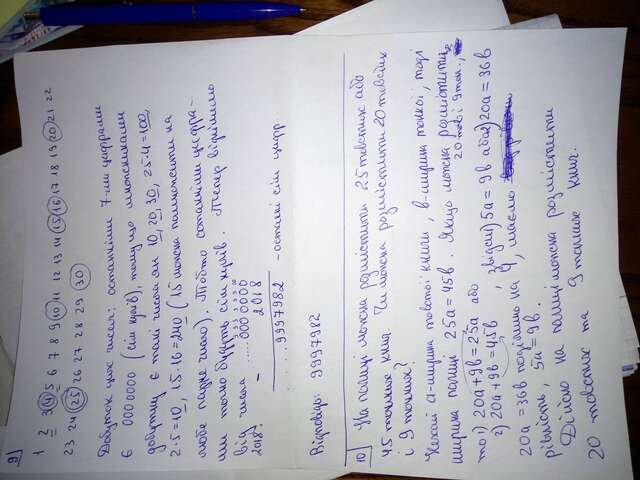 9)
1 2 3 4 5 6 7 8 9 10 11 12 13 14 15 16 17 18 19 20 21 22
23 24 25 26 27 28 29 30
Добуток цих чисел: останніми 7-ми цифрами
є 0000000 (сім нулів), тому що множниками
добутку є такі числа як 10, 20, 30, 25·4=100,
2·5=10, 15·16=240 (15 можна помножити на
любе парне число). Тобто останніми цифра-
ми точно будуть сім нулів. Тепер віднімемо
від числа ......0000000
2018. - 2018
...9997982 - останні сім цифр.
Відповідь: 9997982
10) На полиці можна розмістити 25 товстих або
45 тонких книг. Чи можна розмістити 20 товстих
і 9 тонких?
Нехай a-ширина товстої книги, в-ширина тонкої, тоді
ширина полиці 25a=45в. Якщо можна розмістити
20 товс 9 тон.,
то 1) 20a+9в=25a або звідси) 5a=9в або 2) 20a=36в
2) 20a+9в=45в
20a=36в поділимо на 4, маємо
рівність, 5a=9в.
Дійсно на полиці можна розмістити
20 товстих та 9 тонких книг.